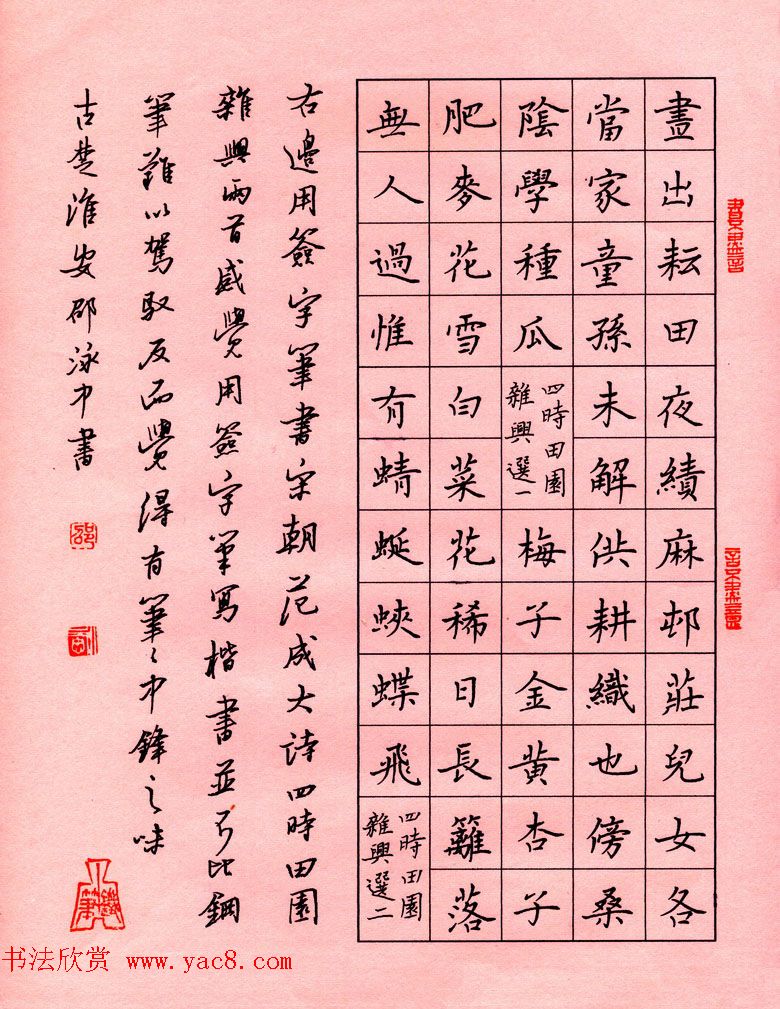 晝出耘田夜績麻邨莊兒女各
當家童孫未解供耕織也傍桑
陰學種瓜
四時田園
雜興選一
梅子金黃杏子
肥麥花雪白菜花稀日長籬落
無人過惟有蜻蜓蛺蝶飛
四時田園
雜興選二
右邊用簽字筆書宋朝范成大詩四時田園
雜興兩首感覺用簽字筆寫楷書並不比鋼
筆難以駕馭反而覺得有筆〻中鋒之味
古楚淮安邵泳中書
邵
书法欣赏 www.yac8.com